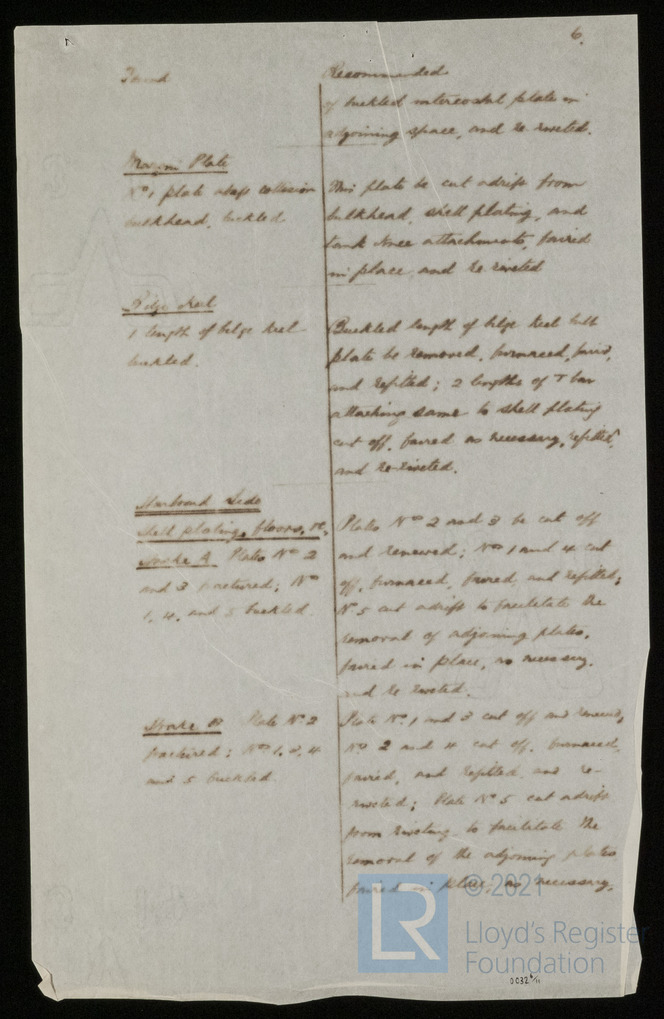 6.
Found
Recommended
of buckled intercostal plate in
adjoining space, and re-riveted.
Margin Plate
No 1 plate abaft collision
bulkhead, buckled.
This plate be cut adrift from
bulkhead, shell plating, and
tank knee attachments, faired
in place, and re-riveted
Bilge Keel
1 length of bilge keel
buckled.
Buckled length of bilge keel bulb
plate be removed, furnaced, faired,
and refitted; 2 lengths of T bar
attaching same to shell plating
cut off, faired as necessary, refitted,
and re-riveted.
Starboard Side
Shell plating, floors, &c.
Strake A Plates No 2
and 3 fractured; No
1, 4, and 5 buckled.
Plates No 2 and 3 be cut off
and renewed; No 1 and 4 cut
off, furnaced, faired, and refitted;
No 5 cut adrift to facilitate the
removal of adjoining plates,
faired in place, as necessary,
and re-riveted.
Strake B Plate No 2
fractured; No 1, 3, 4
and 5 buckled
Plate No 1 and 3 cut off and renewed,
No 2 and 4 cut off, furnaced,
faired, and refitted and re-
riveted; Plate No 5 cut adrift
from riveting to facilitate the
removal of the adjoining plates
faired in place, as necessary,
LR
© 2021
Lloyd's Register
Foundation